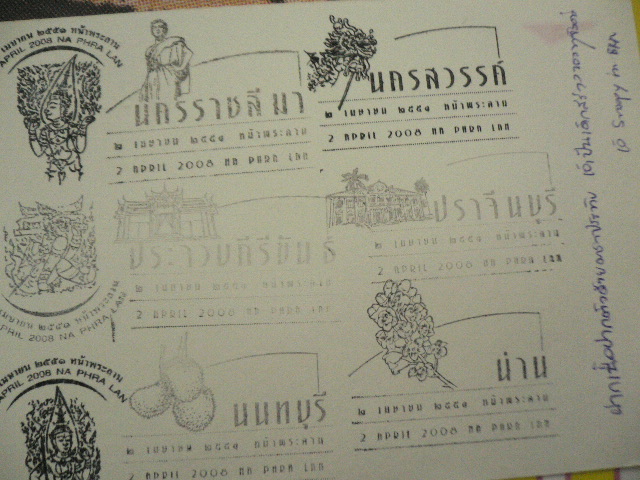 เมษายน ๒๕๕๑ หน้าพระลาน
APRIL 2008 NA PHRA LAN
นครราชสีมา
๒ เมษายน ๒๕๕๑ หน้าพระลาน
2 APRIL 2008 NA PHRA LAN
นครสวรรค์
๒ เมษายน ๒๕๕๑ หน้าพระลาน
2 APRIL 2008 NA PHRA LAN
ประจวบคีรีขันธ์
๒ เมษายน ๒๕๕๑ หน้าพระลาน
2 APRIL 2008 NA PHRA LAN
ปราจีนบุรี
๒ เมษายน ๒๕๕๑ หน้าพระลาน
2 APRIL 2008 NA PHRA LAN
เมษายน ๒๕๕๑ หน้าพระลาน
APRIL 2008 NA PHRA LAN
เมษายน ๒๕๕๑ หน้าพระลาน
APRIL 2008 NA PHRA LAN
นนทบุรี
๒ เมษายน ๒๕๕๑ หน้าพระลาน
2 APRIL 2008 NA PHRA LAN
น่าน
๒ เมษายน ๒๕๕๑ หน้าพระลาน
2 APRIL 2008 NA PHRA LAN